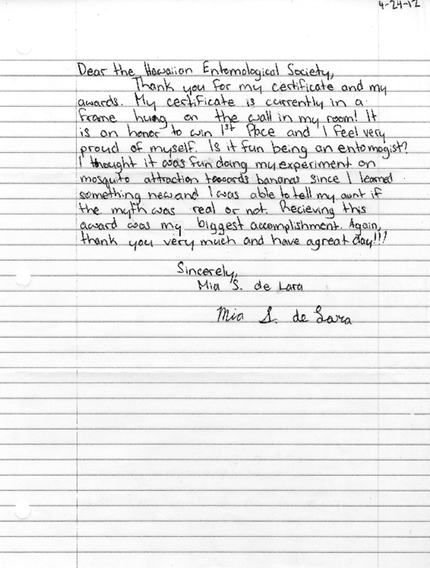 4-24-12
Dear the Hawaiion Entomological Society,
Thank you for my certificate and my
awards. My certificate is currently in a
frame hung on the wall in my room! It
is an honor to win 1st Place and I feel very
proud of myself. Is it fun being an entomogist?
I thought it was fun doing my experiment on
mosquito attraction towards bananas since I learned
something new and I was able to tell my aunt if
the myth was real or not. Recieving this
award was my biggest accomplishment. Again,
thank you very much and have a great day!!!
Sincerely,
Mia S. de Lara
Mia S. de Lara